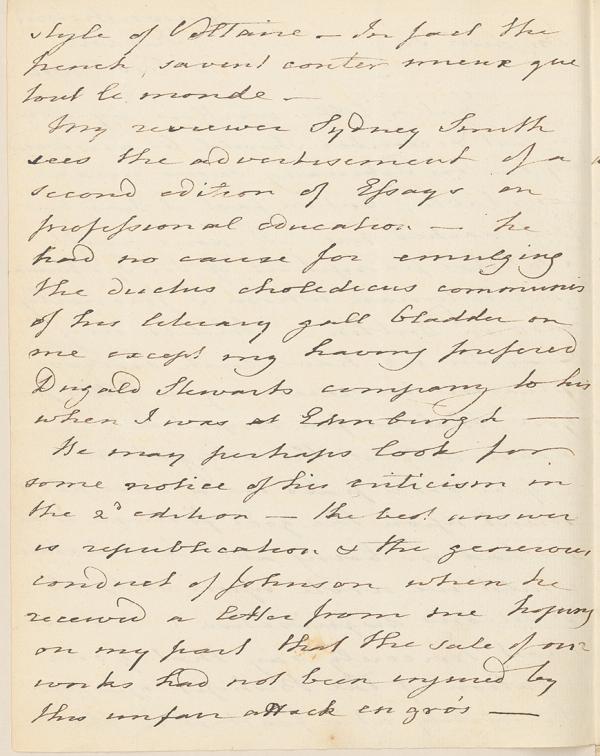 style of Voltaire – In fact the
french savent conter mieux que
tout le monde –
My reviewer Sydney Smith
sees the advertisement of a
second edition of Essays on
professional education – he
had no cause for emulging
the ductus choledicus communis
of his literary gall bladder on
me except my having prefered
Dugald Stewarts company to his
when I was at Edinburgh –
He may perhaps look for
some notice of his criticism in
the 2d edition – the best answer
is republication & the generous
conduct of Johnson when he
received a letter from me hoping
on my part that the sale of our
works had not been injured by
this unfair attack en gros –